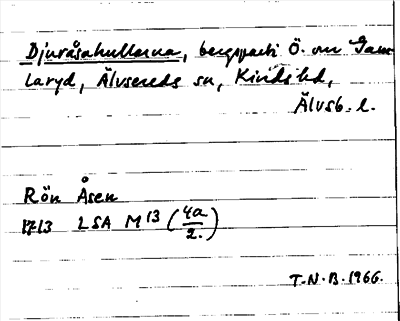 Djuråsakullarna, bergsparti Ö. om Gam-
laryd, Älvsereds sn, Kinds hd,
Älvsb. l.
Rön Åsen
1713 LSA M 13 (4a/2.)
T.N.B. 1966.